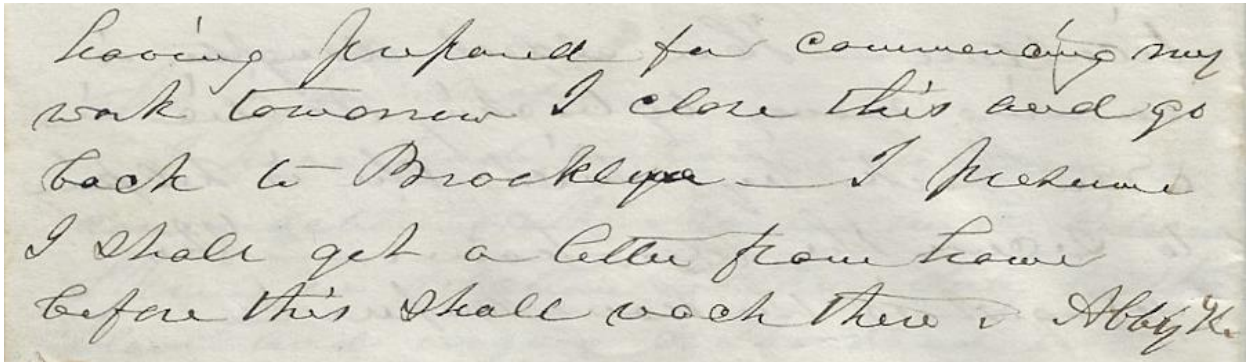 having prepared for commencing my
work tomorrow I close this and go
back to Brooklyn — I presume
I shall get a letter from home
before this shall reach there. Abby K.